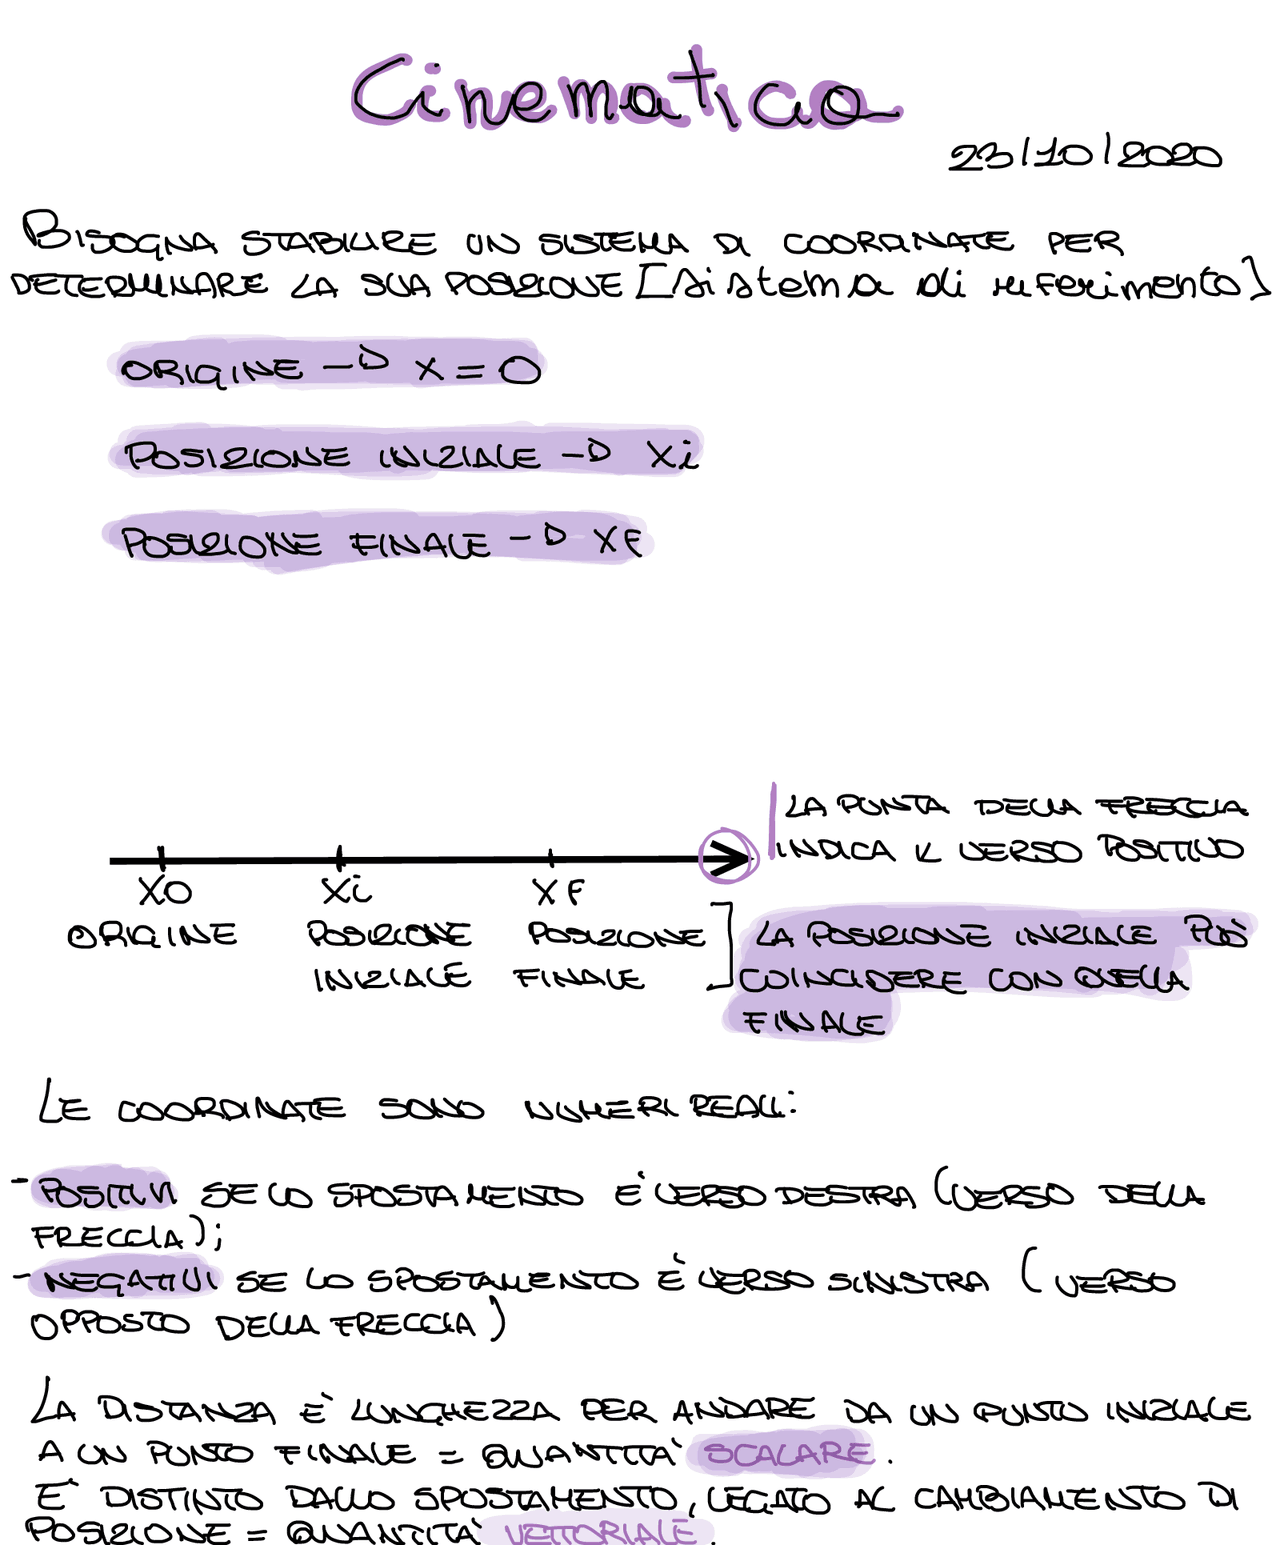 Cinematica
23/10/2020
BISOGNA STABILIRE UN SISTEMA DI COORDINATE PER
DETERMINARE LA SUA POSIZIONE [sistema di riferimento]
ORIGINE -D X = 0
POSIZIONE INIZIALE -D Xi
POSIZIONE FINALE -D XF
LA PUNTA DELLA FRECCIA
INDICA IL VERSO POSITIVO
X0 Xi XF
ORIGINE POSIZIONE POSIZIONE
INIZIALE FINALE
LA POSIZIONE INIZIALE PUÒ
COINCIDERE CON QUELLA
FINALE
LE COORDINATE SONO NUMERI REALI:
- POSITIVI SE LO SPOSTAMENTO E' VERSO DESTRA (VERSO DELLA
FRECCIA);
- NEGATIVI SE LO SPOSTAMENTO È VERSO SINISTRA (VERSO
OPPOSTO DELLA FRECCIA)
LA DISTANZA È LUNGHEZZA PER ANDARE DA UN PUNTO INIZIALE
A UN PUNTO FINALE = QUANTITA' SCALARE.
E' DISTINTO DALLO SPOSTAMENTO, LEGATO AL CAMBIAMENTO DI
POSIZIONE = QUANTITA' VETTORIALE.